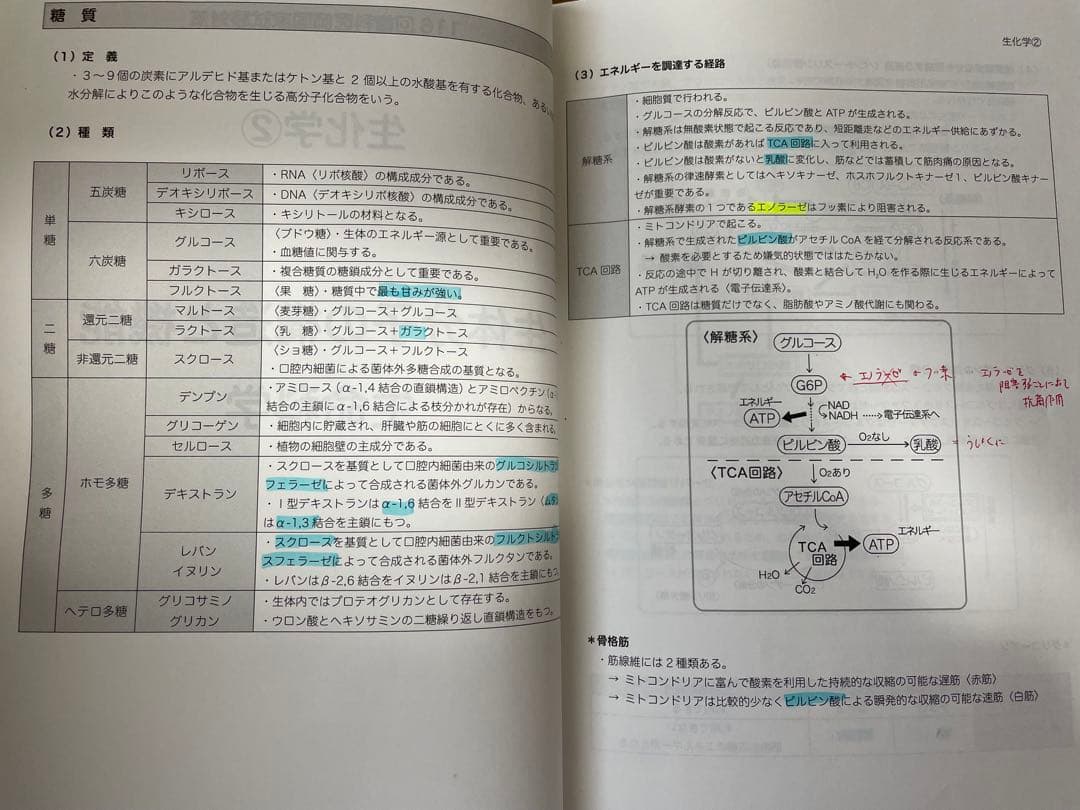 糖 質
(1)定 義
・3～9個の炭素にアルデヒド基またはケトン基と 2 個以上の水酸基を有する化合物、ある
水分解によりこのような化合物を生じる高分子化合物をいう。
(2)種 類
単糖
五炭糖
リボース
・RNA（リボ核酸）の構成成分である。
デオキシリボース
・DNA（デオキシリボ核酸）の構成成分である。
キシロース
・キシリトールの材料となる。
六炭糖
グルコース
〈ブドウ糖〉・生体のエネルギー源として重要である。
・血糖値に関与する。
ガラクトース
・複合糖質の糖鎖成分として重要である。
フルクトース
〈果 糖〉・糖質中で最も甘みが強い。
二糖
還元二糖
マルトース
〈麦芽糖〉・グルコース＋グルコース
ラクトース
〈乳 糖〉・グルコース＋ガラクトース
非還元二糖
スクロース
〈ショ糖〉・グルコース＋フルクトース
・口腔内細菌による菌体外多糖合成の基質となる。
多糖
ホモ多糖
デンプン
・アミロース（α-1,4 結合の直鎖構造）とアミロペクチン（α-
結合の主鎖にα-1,6 結合による枝分かれが存在）からなる。
グリコーゲン
・細胞内に貯蔵され、肝臓や筋の細胞にとくに多く含まれる。
セルロース
・植物の細胞壁の主成分である。
デキストラン
・スクロースを基質として口腔内細菌由来のグルコシルトラン
フェラーゼによって合成される菌体外グルカンである。
・Ⅰ型デキストランはα-1,6 結合をⅡ型デキストラン〈ムタ
はα-1,3 結合を主鎖にもつ。
レバン
イヌリン
・スクロースを基質として口腔内細菌由来のフルクトシルト
スフェラーゼによって合成される菌体外フルクタンである。
・レバンはβ-2,6 結合をイヌリンはβ-2,1 結合を主鎖にもつ
ヘテロ多糖
グリコサミノ
グリカン
・生体内ではプロテオグリカンとして存在する。
・ウロン酸とヘキソサミンの二糖繰り返し直鎖構造をもつ。
生化学②
(3)エネルギーを調達する経路
解糖系
・細胞質で行われる。
・グルコースの分解反応で、ピルビン酸と ATP が生成される。
・解糖系は無酸素状態で起こる反応であり、短距離走などのエネルギー供給にあずかる。
・ピルビン酸は酸素があれば TCA 回路に入って利用される。
・ピルビン酸は酸素がないと乳酸に変化し、筋などでは蓄積して筋肉痛の原因となる。
・解糖系の律速酵素としてはヘキソキナーゼ、ホスホフルクトキナーゼ1、ピルビン酸キナー
ゼが重要である。
・解糖系酵素の1つであるエノラーゼはフッ素により阻害される。
TCA 回路
・ミトコンドリアで起こる。
・解糖系で生成されたピルビン酸がアセチル CoA を経て分解される反応系である。
→ 酸素を必要とするため嫌気的状態でははたらかない。
・反応の途中で H が切り離され、酸素と結合して H₂O を作る際に生じるエネルギーによって
ATP が生成される〈電子伝達系〉。
・TCA 回路は糖質だけでなく、脂肪酸やアミノ酸代謝にも関わる。
〈解糖系〉
グルコース
G6P
エネルギー
ATP
NAD
NADH ……→電子伝達系へ
ピルビン酸
O₂なし
乳酸
〈TCA回路〉
O₂あり
アセチルCoA
TCA
回路
エネルギー
ATP
H₂O
CO₂
← フッ素
＊骨格筋
・筋線維には 2 種類ある。
→ ミトコンドリアに富んで酸素を利用した持続的な収縮の可能な遅筋〈赤筋〉
→ ミトコンドリアは比較的少なくピルビン酸による瞬発的な収縮の可能な速筋〈白筋〉